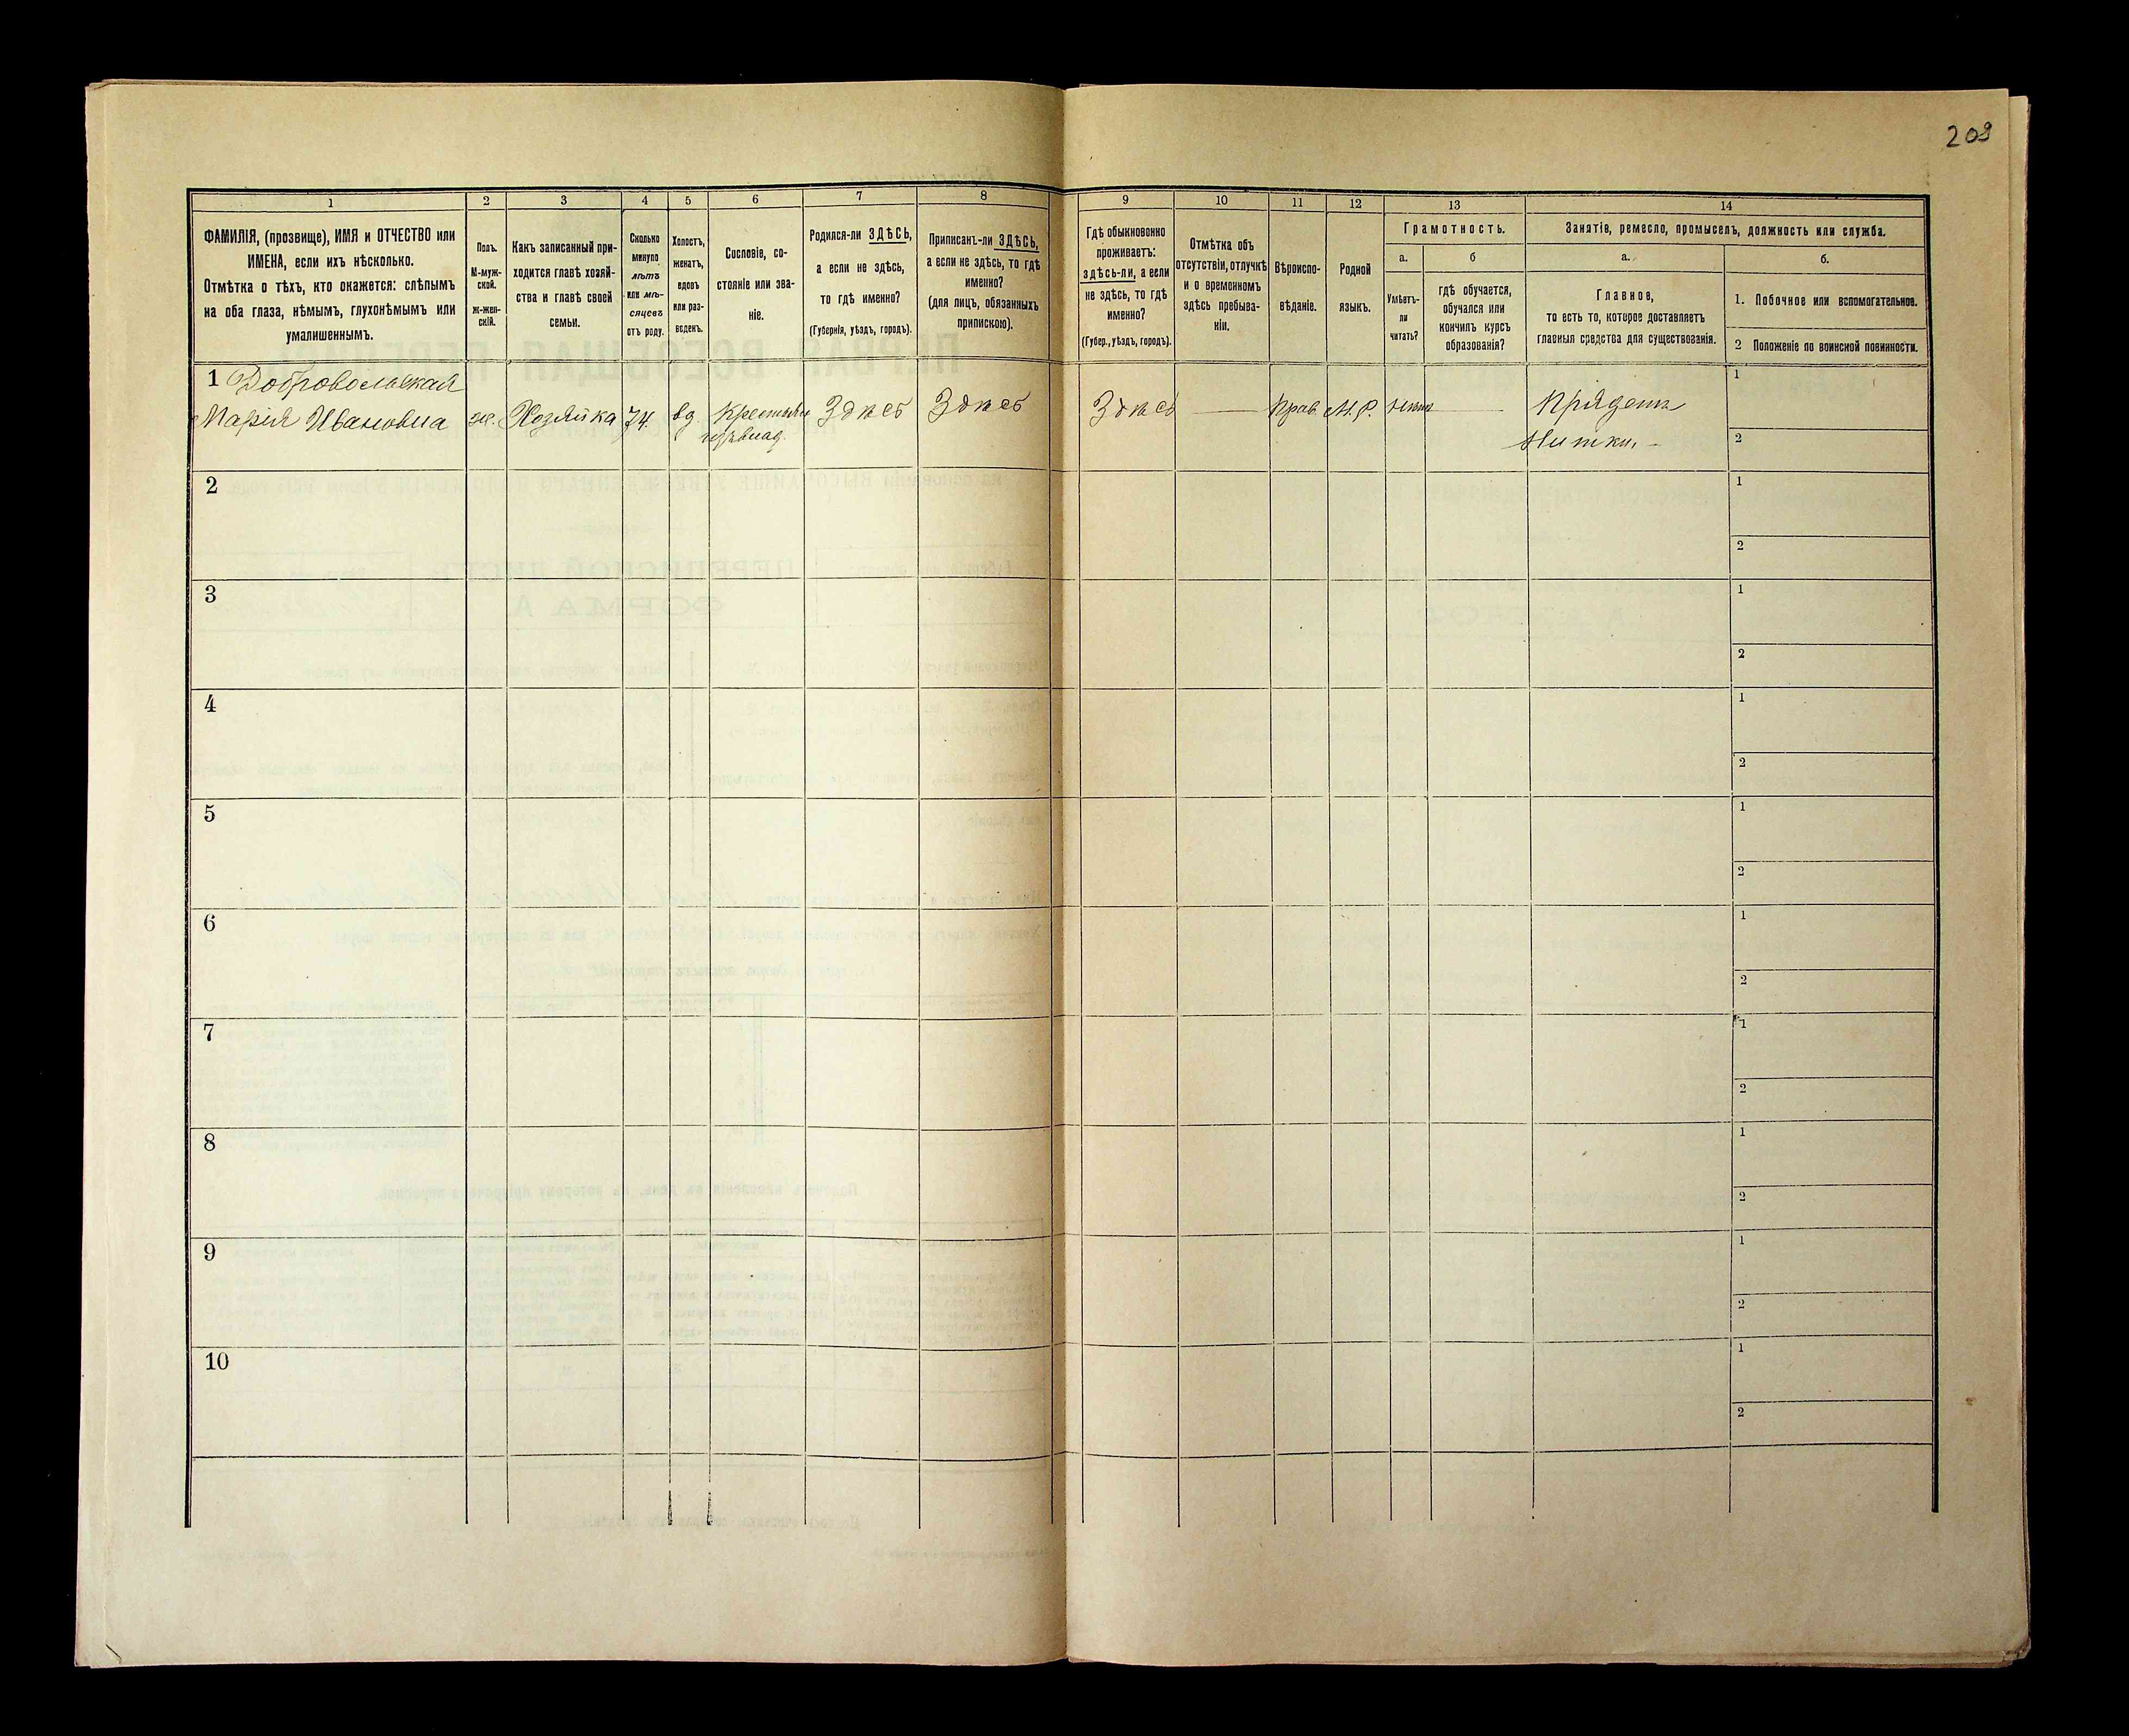 209
1
2
3
4
5
6
7
8
ФАМИЛІЯ, (прозвище), ИМЯ и ОТЧЕСТВО или
ИМЕНА, если ихъ нѣсколько.
Отмѣтка о тѣхъ, кто окажется: слѣпымъ
на оба глаза, нѣмымъ, глухонѣмымъ или
умалишеннымъ.
Полъ.
М-муж-
ской.
Ж-жен-
скій.
Какъ записанный при-
ходится главѣ хозяй-
ства и главѣ своей
семьи.
Сколько
минуло
лѣтъ
или мѣ-
сяцевъ
отъ роду.
Холостъ,
женатъ,
вдовъ
или раз-
веденъ.
Сословіе, со-
стояніе или зва-
ніе.
Родился-ли ЗДѢСЬ,
а если не здѣсь,
то гдѣ именно?
(Губернія, уѣздъ, городъ).
Приписанъ-ли ЗДѢСЬ,
а если не здѣсь, то гдѣ
именно?
(для лицъ, обязанныхъ
припискою).
9
10
11
12
13
14
Гдѣ обыкновенно
проживаетъ:
здѣсь-ли, а если
не здѣсь, то гдѣ
именно?
(Губер., уѣздъ, городъ).
Отмѣтка объ
отсутствіи, отлучкѣ
и о временномъ
здѣсь пребыва-
ніи.
Вѣроиспо-
вѣданіе.
Родной
языкъ.
Грамотность.
а.
б
Умѣетъ-
ли
читать?
гдѣ обучается,
обучался или
кончилъ курсъ
образованія?
Занятіе, ремесло, промыселъ, должность или служба.
а.
б.
Главное,
то есть то, которое доставляетъ
главныя средства для существованія.
1. Побочное или вспомогательное.
2 Положеніе по воинской повинности.
1 Добровольская
Марія Ивановна ж. Хозяйка 74. вд. Здѣсь Здѣсь Здѣсь — Прав М.Р. — Прядетъ 1
нитки. – 2
2 1
2
3 1
2
4 1
2
5 1
2
6 1
2
7 1
2
8 1
2
9 1
2
10 1
2